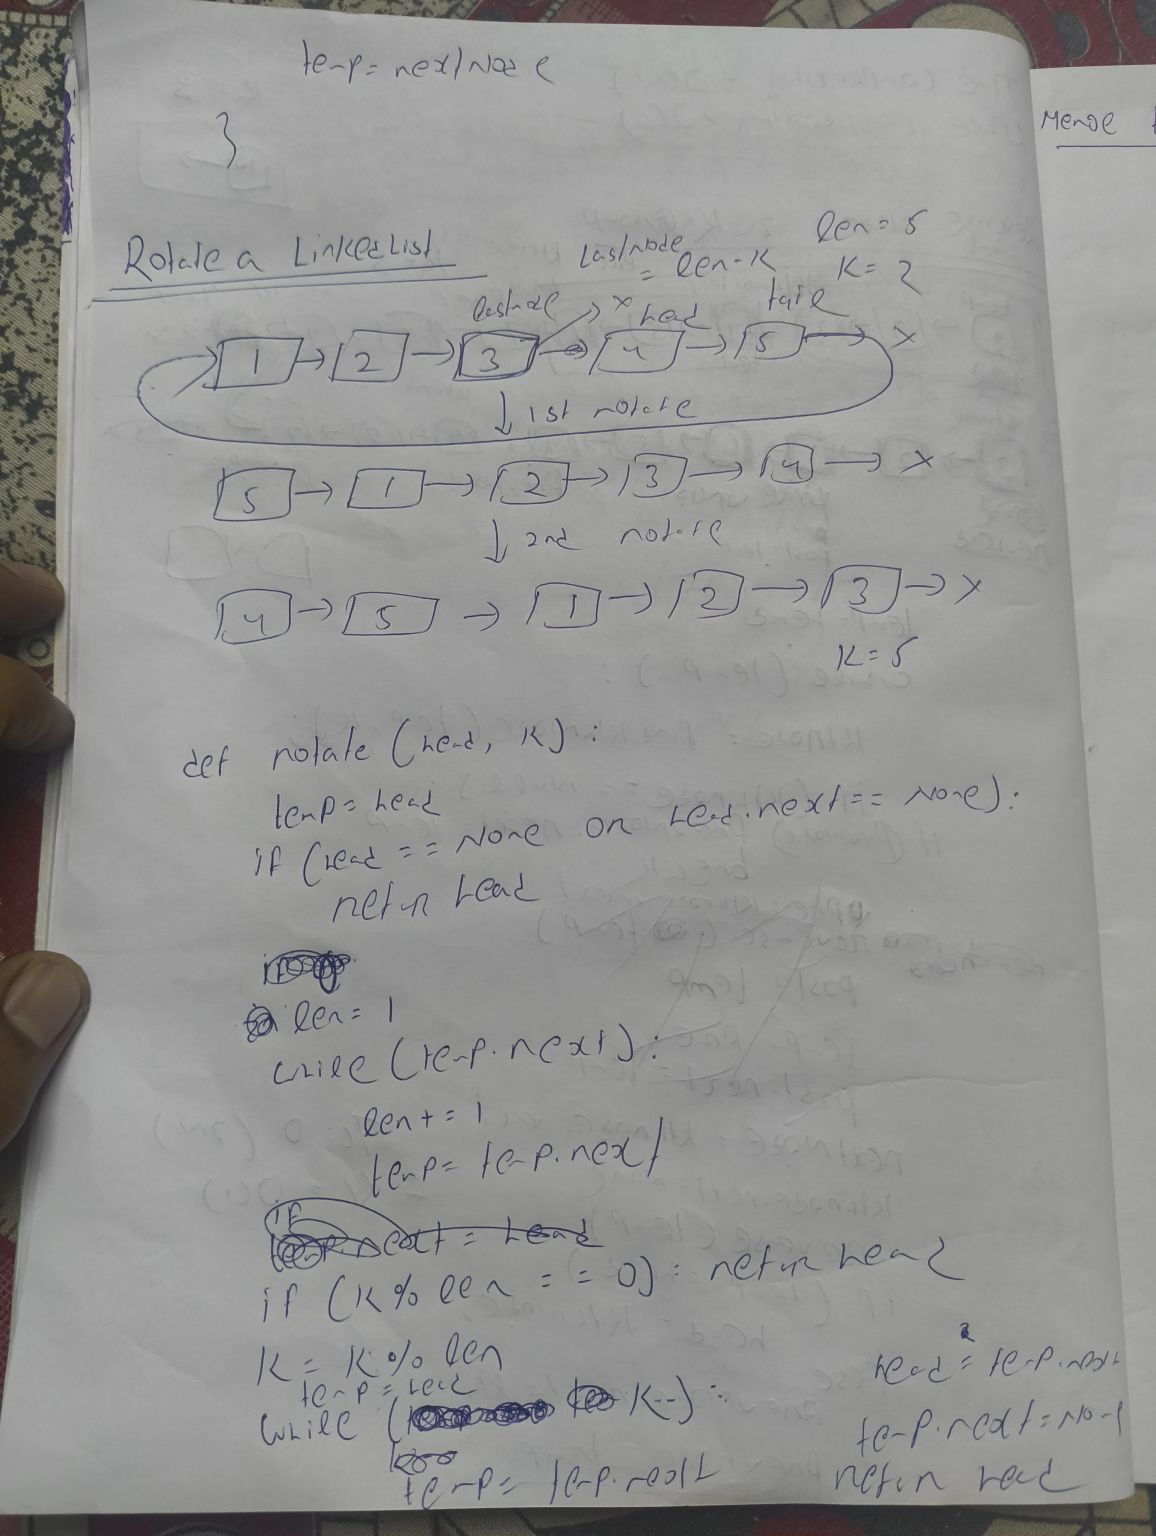 temp = nextNode
}
Merge
Rotate a Linked List
Lastnode = len - K
len = 5
K = 2
lastnode x Head tail
1 → 2 → 3 → 4 → 5 → x
↓ 1st rotate
5 → 1 → 2 → 3 → 4 → x
↓ 2nd rotate
4 → 5 → 1 → 2 → 3 → x
K = 5
def rotate (head, K) :
temp = head
if (head == None or head.next == None) :
return head
len = 1
while (temp.next) :
len += 1
temp = temp.next
if
temp.next = head
if (K % len == 0) : return head
K = K % len
temp = head
while ( K--) :
temp = temp.next
head = temp.next
temp.next = None
return head